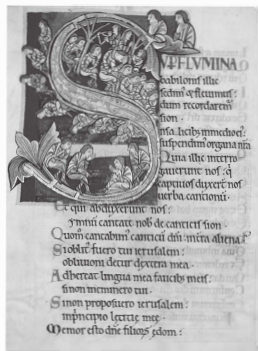 S UP FLUMINA
babilonis illic
sedimꝰ ⁊ fleuimus:
dum recordaremꝰ
sion
Insalicibꝫ in medio eiꝰ:
suspendimꝰ organa nr̃a
Quia illic interro
gauerunt nos: q̃
captiuos duxer̃t nos
uerba cantionũ.
Et qui abduxerunt nos:
ymnũ cantate nob̃ de canticis sion.
Quom̃ cantabimꝰ canticũ dñi: in tr̃a aliena.
Si oblitꝰ fuero tui ierusalem:
obliuioni detur dextera mea.
Adhereat lingua mea faucibꝫ meis:
si non meminero tui.
Si non proposuero ierusalem:
in principio leticie meę.
Memor esto dñe filioꝝ edom: